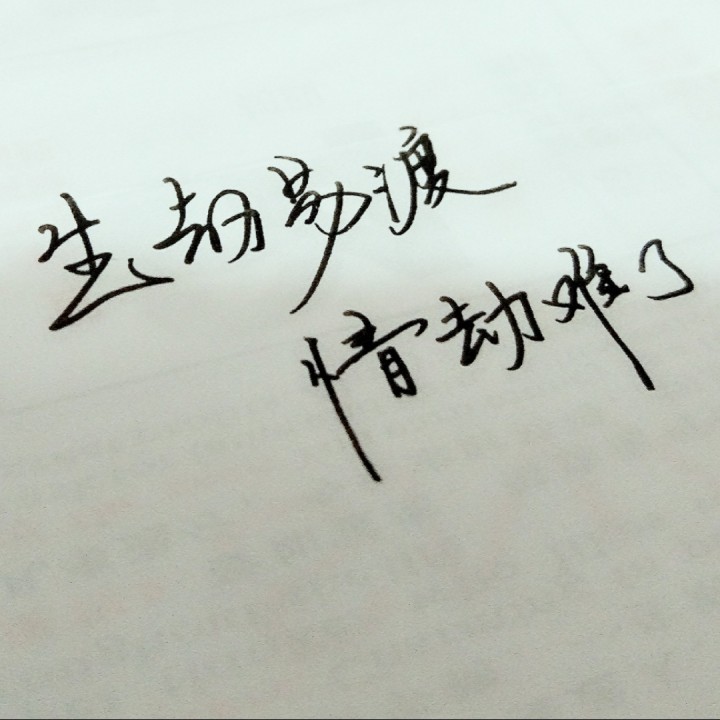 生劫易渡
情劫难了